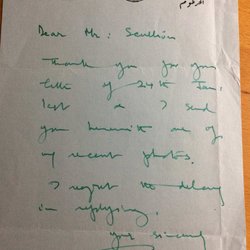 المرقوم
Dear Mr. Scullion
Thank you for your
letter of 24th Jan.
last & I send
you herewith one of
my recent photos.
I regret the delay
in replying.
Your sincerely